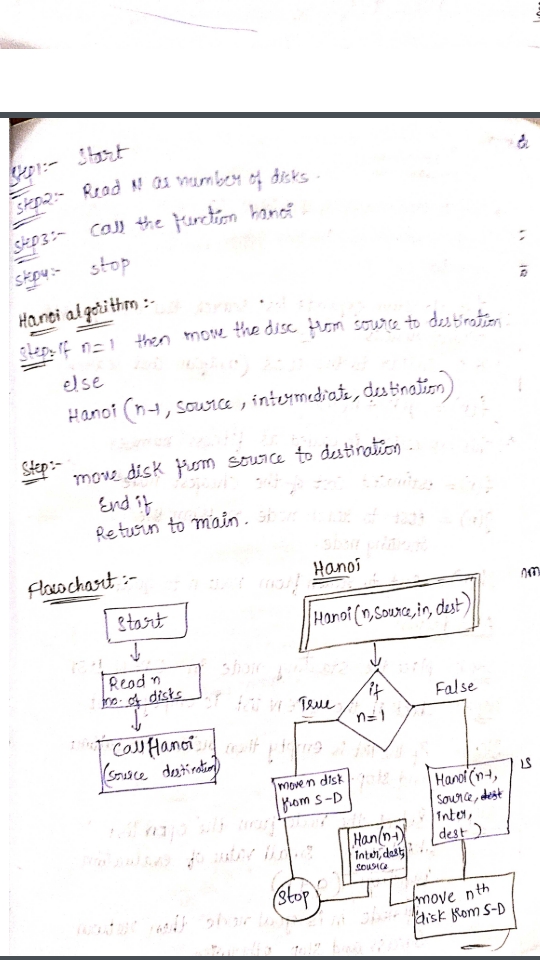 Step1:- Start
Step2:- Read N as number of disks.
Step3:- Call the function hanoi
Step4:- stop
Hanoi algorithm:-
Step:- If n=1 then move the disc from source to destination
else
Hanoi (n-1, source, intermediate, destination)
Step:- move disk from source to destination.
End if
Return to main.
Flowchart:-
Start
Read n
no. of disks
Call Hanoi
(source destination)
Hanoi
Hanoi (n, source, in, dest)
if
n=1
True
False
move n disk
from S-D
Hanoi (n-1,
source, dest
inter,
dest)
Han(n-1)
inter, dest,
source
Stop
move nth
disk from S-D